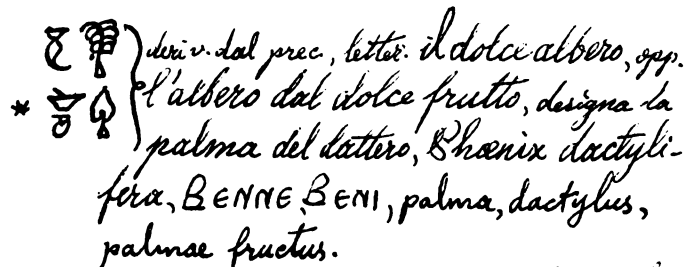 deriv. dal prec., letter. il dolce albero, opp.
* l'albero dal dolce frutto, designa la
palma del dattero, Phœnix dactyli-
fera, BENNE, BENI, palma, dactylus,
palmae fructus.